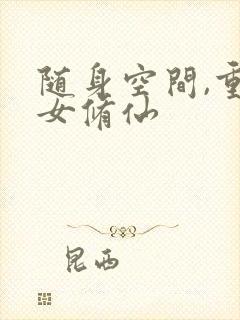 随身空間,重
女脩仙
昆西